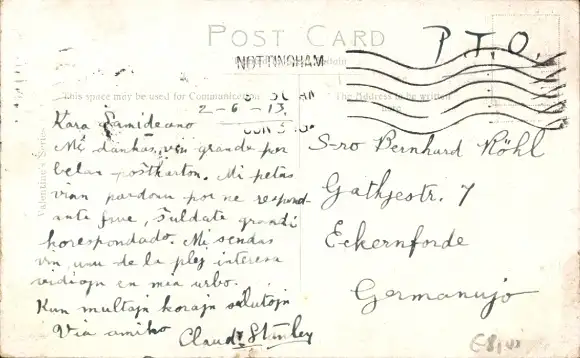 POST CARD
P.T.O.
NOTTINGHAM
This space may be used for Communication
The Address to be written
2-6-13.
Valentine's Series
Kara Samideano
Mi dankas vin grande por
belan postkarton. Mi petas
vian pardonn por ne respond-
ante frue,
korespondado. Mi sendas
vin unu de la plej interesa
vidiojn en mia urbo.
Kun multajn korajn salutojn
Via amiko
Claude Stanley
S-ro Bernhard Röhl
Gathjestr. 7
Eckernforde
Germanujo